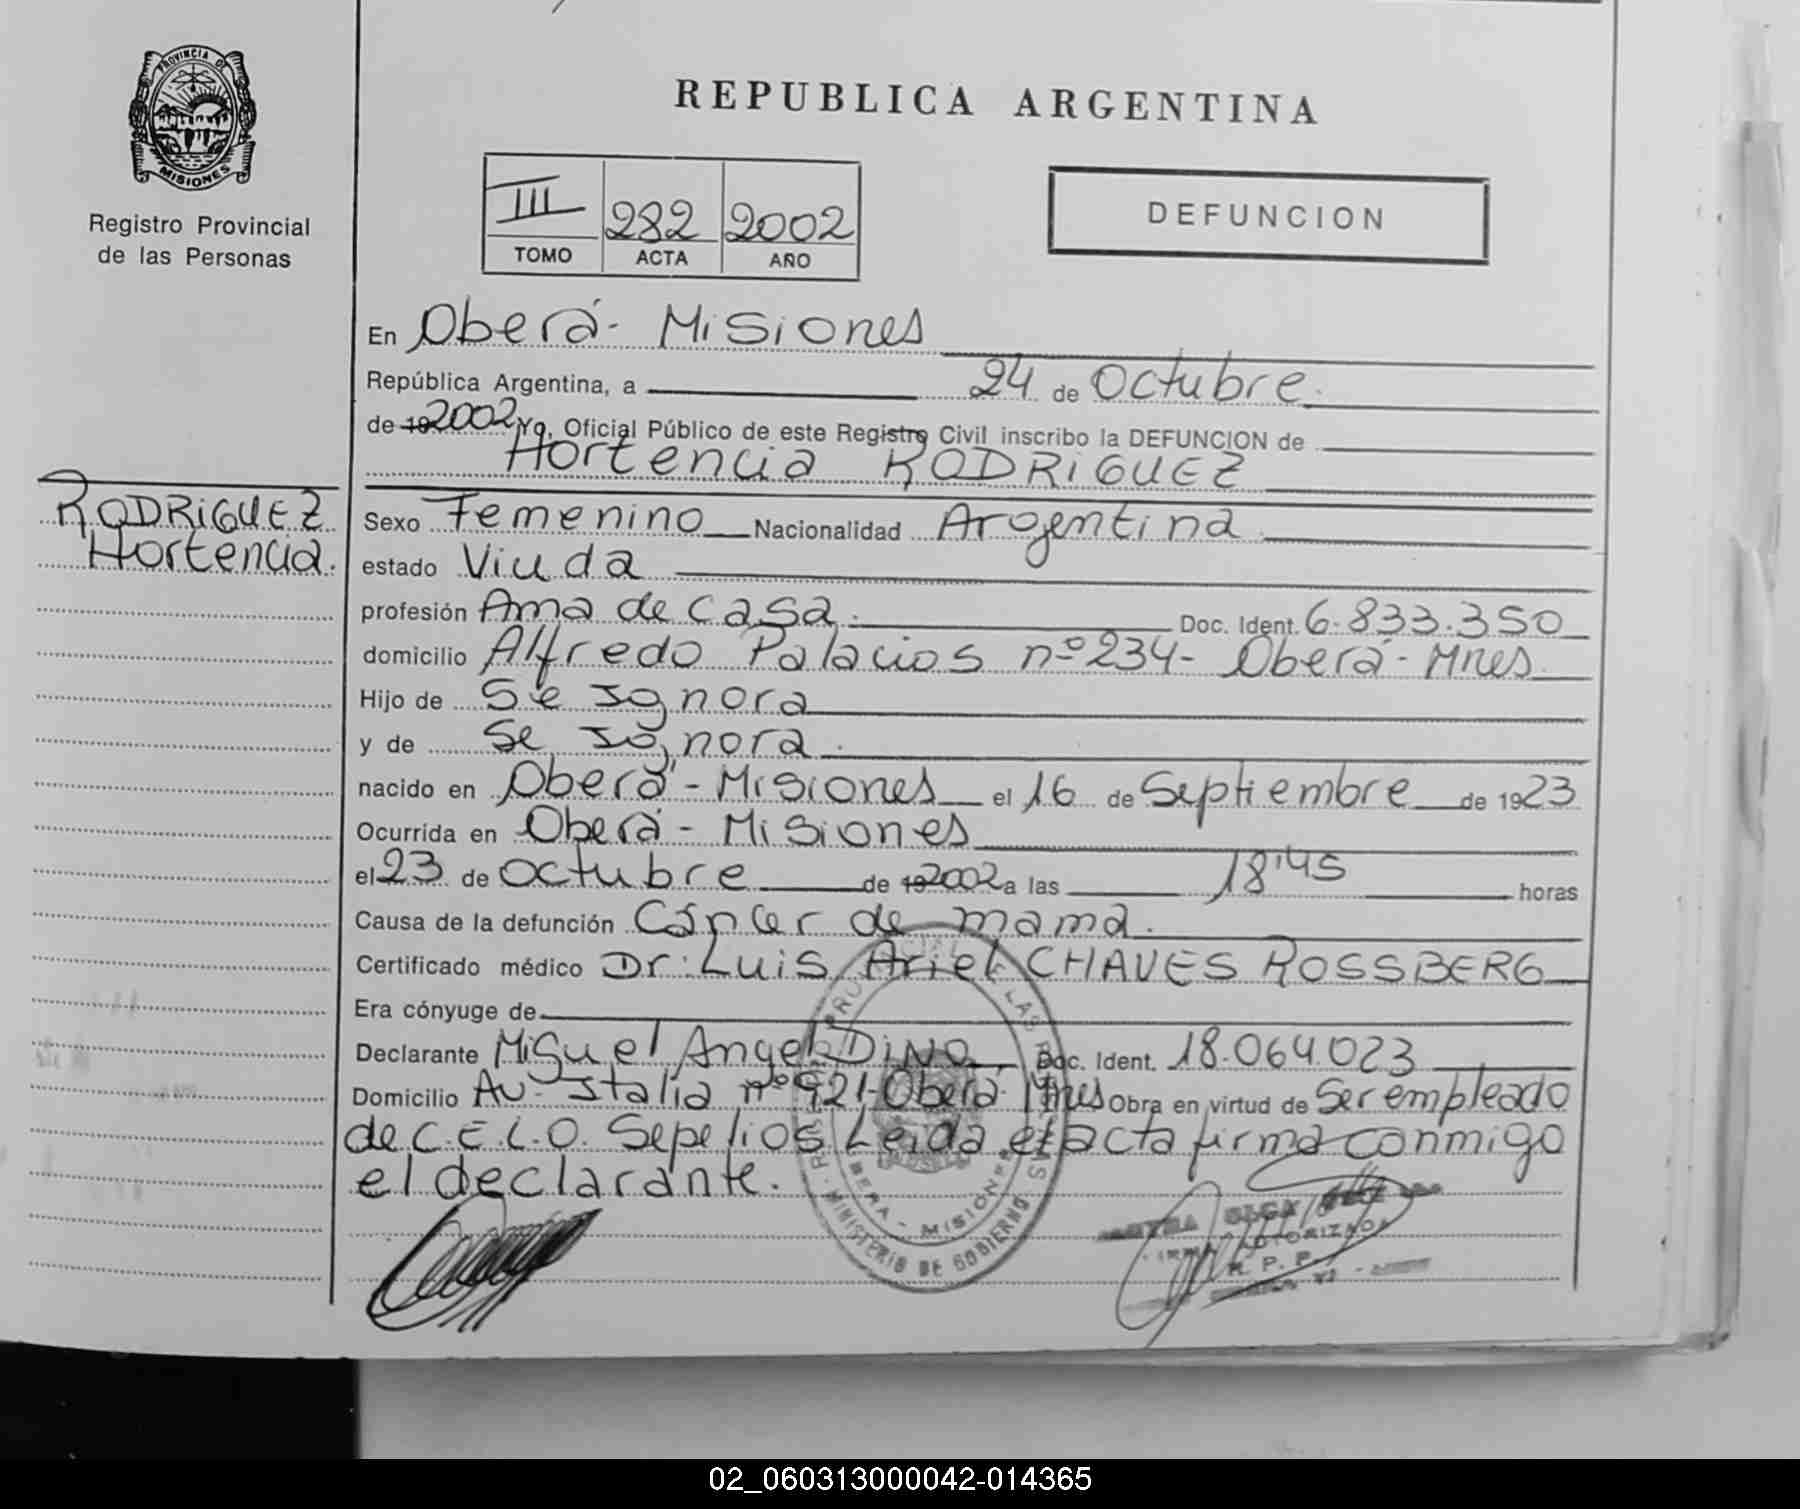 PROVINCIA DE
MISIONES
Registro Provincial
de las Personas
REPUBLICA ARGENTINA
III 282 2002
TOMO ACTA AÑO
DEFUNCION
En Oberá - Misiones
República Argentina, a 24 de Octubre.
de 19 2002 Yo, Oficial Público de este Registro Civil inscribo la DEFUNCION de
Hortencia RODRIGUEZ
RODRIGUEZ
Hortencia.
Sexo Femenino Nacionalidad Argentina
estado Viuda
profesión Ama de casa. Doc. Ident. 6.833.350
domicilio Alfredo Palacios nº 234 - Oberá - Mnes
Hijo de Se ignora
y de Se ignora.
nacido en Oberá - Misiones el 16 de Septiembre de 1923
Ocurrida en Oberá - Misiones
el 23 de Octubre de 19 2002 a las 18'45 horas
Causa de la defunción Cáncer de mama.
Certificado médico Dr. Luis Ariel CHAVES ROSSBERG
Era cónyuge de
Declarante Miguel Angel DINO Doc. Ident. 18.064.023
Domicilio Av. Italia nº 921 - Oberá - Mnes Obra en virtud de Ser empleado
de C.E.L.O. Sepelios Leida el acta firma conmigo
el declarante.
OBERA - MISIONES
MINISTERIO DE GOBIERNO
OLGA
AUTORIZADA
R. P. P.
02_060313000042-014365